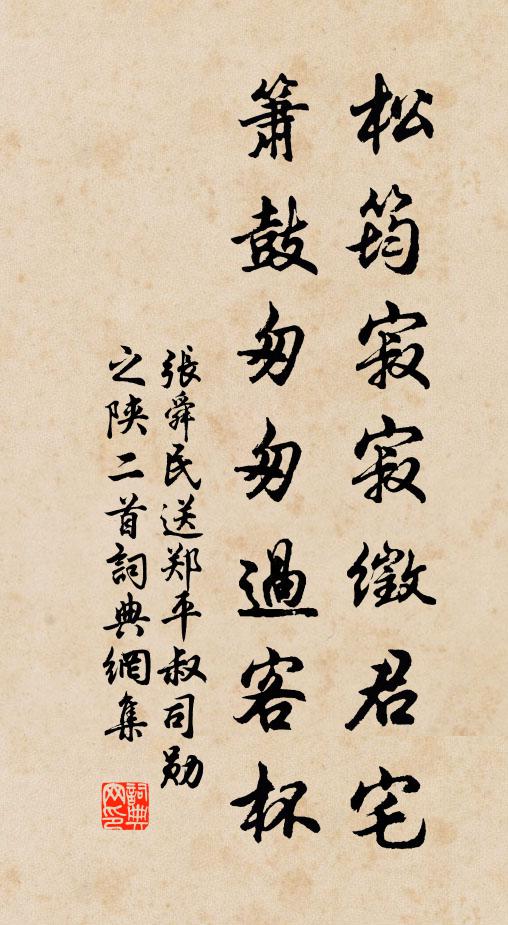 松筠寂寂徵君宅
簫鼓匆匆過客杯
張舜民送郑平叔司勋
之陕二首詞典網集
詞典网印